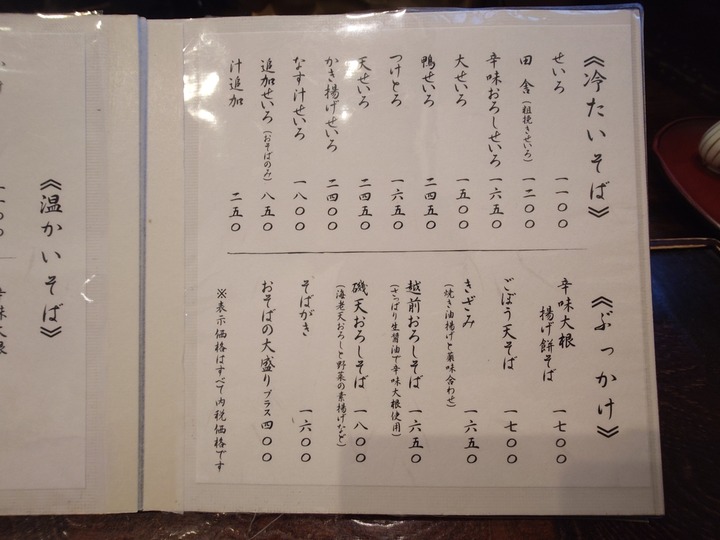 《冷たいそば》
せいろ 一一〇〇
田舎(粗挽きせいろ) 一二〇〇
辛味おろしせいろ 一六五〇
大せいろ 一五〇〇
鴨せいろ 二四五〇
つけとろ 一六五〇
天せいろ 二四五〇
かき揚げせいろ 二四〇〇
なす汁せいろ 一八〇〇
追加せいろ(おそばのみ) 八五〇
汁追加 二五〇
《ぶっかけ》
辛味大根
揚げ餅そば 一七〇〇
ごぼう天そば 一七〇〇
きざみ 一六五〇
(焼き油揚げと薬味合わせ)
越前おろしそば 一六五〇
(さっぱり生醤油で辛味大根使用)
磯天おろしそば 一八〇〇
(海老天おろしと野菜の素揚げなど)
そばがき 一六〇〇
おそばの大盛りプラス四〇〇
※表示価格はすべて内税価格です
《温かいそば》
一一〇〇
辛味大根